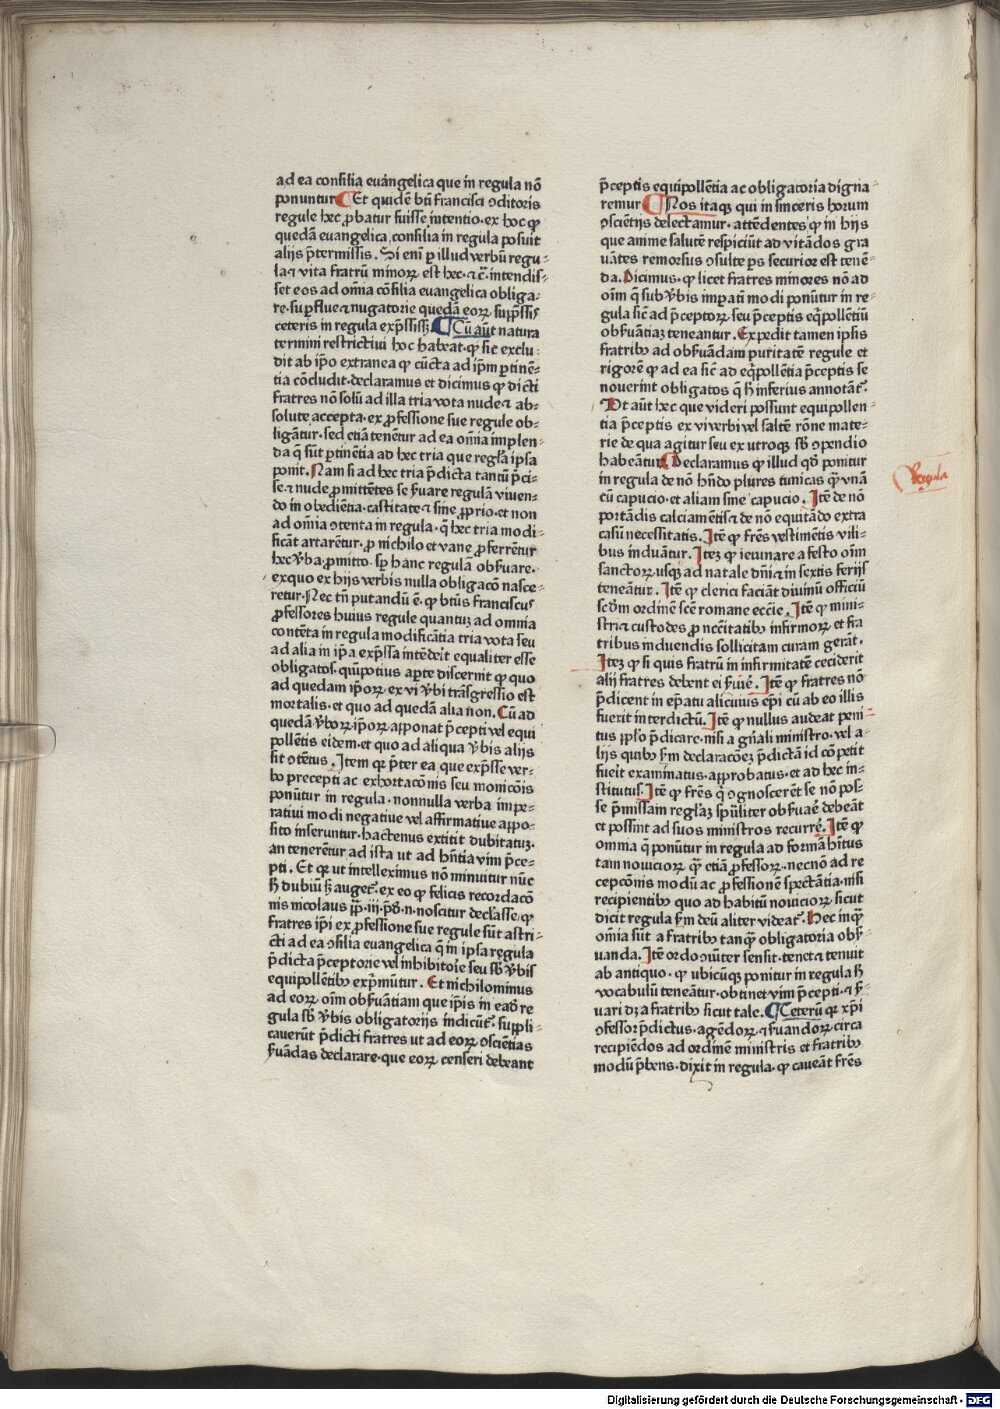 ad ea consilia euāngelica que in regula nō
ponuntur ¶ Et quidē bti francisci ↄditoris
regule hec ꝓbatur fuisse intentio· ex hoc ꝙ
quedā euangelica consilia in regula posuit
alijs p̄termissis. Si eni ꝑ illud verbū regu-
la ⁊ vita fratrū minoꝝ est hec · ⁊ c̄· intendis-
set eos ad om̄ia cōsilia euangelica obliga-
re· suꝑflue ⁊ nugatorie quedā eoꝝ supp̄ssis
ceteris in regula exp̄ssissꝫ ¶ Cū aūt natura
termini restrictiui hoc habeat· ꝙ sic exclu-
dit ab ip̄o extranea ꝙ cūcta ad ip̄m ꝑtinē-
tia cōcludit· declaramus et dicimus ꝙ dicti
fratres nō solū ad illa tria vota nude ⁊ ab-
solute accepta· ex ꝓfessione sue regule ob-
ligātur· sed etiā tenētur ad ea om̄ia implen-
da q̄ sūt ꝑtinētia ad hec tria que regl̄a ipsa
ponit. Nam si ad hec tria p̄dicta tantū p̄ci-
se ⁊ nude ꝓmittētes se ẜuare regulā viuen-
do in obediētia· castitate ⁊ sine ꝓprio· et non
ad om̄ia ↄtenta in regula· q̄ hec tria modi-
ficāt artarētur· ꝓ nichilo et vane ꝓferrētur
hec ꝟba· ꝓmitto· sꝑ hanc regulā obẜuare·
exquo ex hijs verbis nulla obligacō nasce-
retur· Nec tn̄ putandū ē· ꝙ btūs franciscus
ꝓfessores huius regule quantuꝫ ad omnia
contēta in regula modificātia tria vota seu
ad alia in ip̄a exp̄ssa intēderit equaliter esse
obligatos· quīpotius aꝑte discernit ꝙ quo
ad quedam ip̄oꝝ ex vi ꝟbi trāsgressio est
mortalis· et quo ad quedā alia non. Cū ad
quedā ꝟboꝝ ip̄oꝝ apponat p̄cepti vel equi
pollētis eidem· et quo ad aliqua ꝟbis alijs
sit ↄtētus. Item qꝛ p̄ter ea que exp̄sse ver-
bo precepti ac exhortacōnis seu monicōis
ponūtur in regula· nonnulla verba impe-
ratiui modi negatiue vel affirmatiue appo-
sito inseruntur· hactenus extitit dubitatuꝫ·
an tenerētur ad ista ut ad hn̄tia vim p̄ce-
pti. Et qꝛ ut intelleximus nō minuitur nūc
ħ dubiū sꝫ auget᷑· ex eo ꝙ felicis recordacō
nis nicolaus pp̄· iij· p̄d· n· noscitur decl̄asse ꝙ
fratres ip̄i ex ꝓfessione sue regule sūt astri-
cti ad ea ↄsilia euangelica q̄ in ipsa regula
p̄dicta p̄ceptorie vel inhibitoı̄e seu sb̄ ꝟbis
equipollētibꝫ exp̄mūtur. Et nichilominus
ad eoꝝ oīm obẜuātiam que ip̄is in eadē re
gula sb̄ ꝟbis obligatorijs indicūt᷑· suppli-
cauerūt p̄dicti fratres ut ad eoꝝ ↄsciētias
ẜuādas declarare· que eoꝝ censeri debeant
p̄ceptis equipollētia ac obligatoria digna-
remur ¶ Nos itaqꝫ qui in sinceris horum
ↄsciētijs delectamur· attēdentes ꝙ in hijs
que anime salutē respiciūt ad vitādos gra
uātes remorsus ↄsulte ꝑs securior est tenē-
da. Dicimus· ꝙ licet fratres minores nō ad
oīm q̄ sub ꝟbis imꝑati modi ponūtur in re-
gula sic̄ ad p̄ceptoꝝ seu p̄ceptis eq̄pollētiū
obẜuātiaꝫ teneantur. Expedit tamen ipsis
fratribꝫ ad obẜuādam puritatē regule et
rigorē ꝙ ad ea sic̄ ad eq̄pollētia p̄ceptis se
nouerint obligatos q̄ ħ inferius annotāt᷑.
Ut aūt hec que videri possunt equipollen-
tia p̄ceptis ex vi verbi vel saltē rōne mate-
rie de qua agitur seu ex utroqꝫ sb̄ ↄpendio
habeātur ¶ Declaramus ꝙ illud qd̄ ponitur
in regula de nō hn̄do plures tunicas qꝫ vnā
cū capucio· et aliam sine capucio. Itē de nō
portādis calciamētis ⁊ de nō equitādo extra
casū necessitatis. Itē ꝙ fr̄es vestimētis vili-
bus induātur. Iteꝫ ꝙ ieiunare a festo oīm
sanctoꝝ usqꝫ ad natale dn̄i ⁊ in sextis ferijs
teneātur. Itē ꝙ clerici faciāt diuinū officiū
scd̄m ordinē scē romane eccīe. Itē ꝙ mini-
stri ⁊ custodes ꝓ nccītatibꝫ infirmoꝝ et fra
tribus induendis sollicitam curam gerāt.
Iteꝫ ꝙ si quis fratrū in infirmitatē ceciderit
alij fratres debent ei ẜuire. Itē ꝙ fratres nō
p̄dicent in ep̄atu alicuius ep̄i cū ab eo illis
fuerit interdictū. Itē ꝙ nullus audeat peni-
tus pplō p̄dicare· nisi a gn̄ali ministro· vel a-
lijs quibꝫ ẜm declaracōeꝫ p̄dictā id cōpetit
fueit examinatus· approbatus· et ad hec in-
stitutus. Itē ꝙ fr̄es q̄ ↄgnoscerēt se nō pos-
se p̄missam reglaꝫ spūliter obẜuaē debeāt
et possint ad suos ministros recurrē. Itē ꝙ
omnia q̄ ponūtur in regula ad formā hītus
tam nouicioꝝ qꝫ etiā ꝓfessoꝝ· necnō ad re
cepcōnis modū ac ꝓfessionē spectātia· nisi
recipientibꝫ quo ad habitū nouicioꝝ sicut
dicit regula ẜm deū aliter videat᷑. Hec inqꝫ
om̄ia sūt a fratribꝫ tanqꝫ obligatoria obẜ-
uanda. Itē ordo ↄīuter sensit· tenet ⁊ tenuit
ab antiquo· ꝙ ubicūqꝫ ponitur in regula ħ
vocabulū teneātur· obtinet vim p̄cepti· ⁊ ẜ-
uari dꝫ a fratribꝫ sicut tale. ¶ Ceterū qꝛ xp̄i
ↄfessor p̄dictus· agēdoꝝ ⁊ ẜuandoꝝ circa
recipiēdos ad ordinē ministris et fratribꝫ
modū p̄bens· dixit in regula· ꝙ caueāt fr̄es
Regula
Digitalisierung gefördert durch die Deutsche Forschungsgemeinschaft - DFG